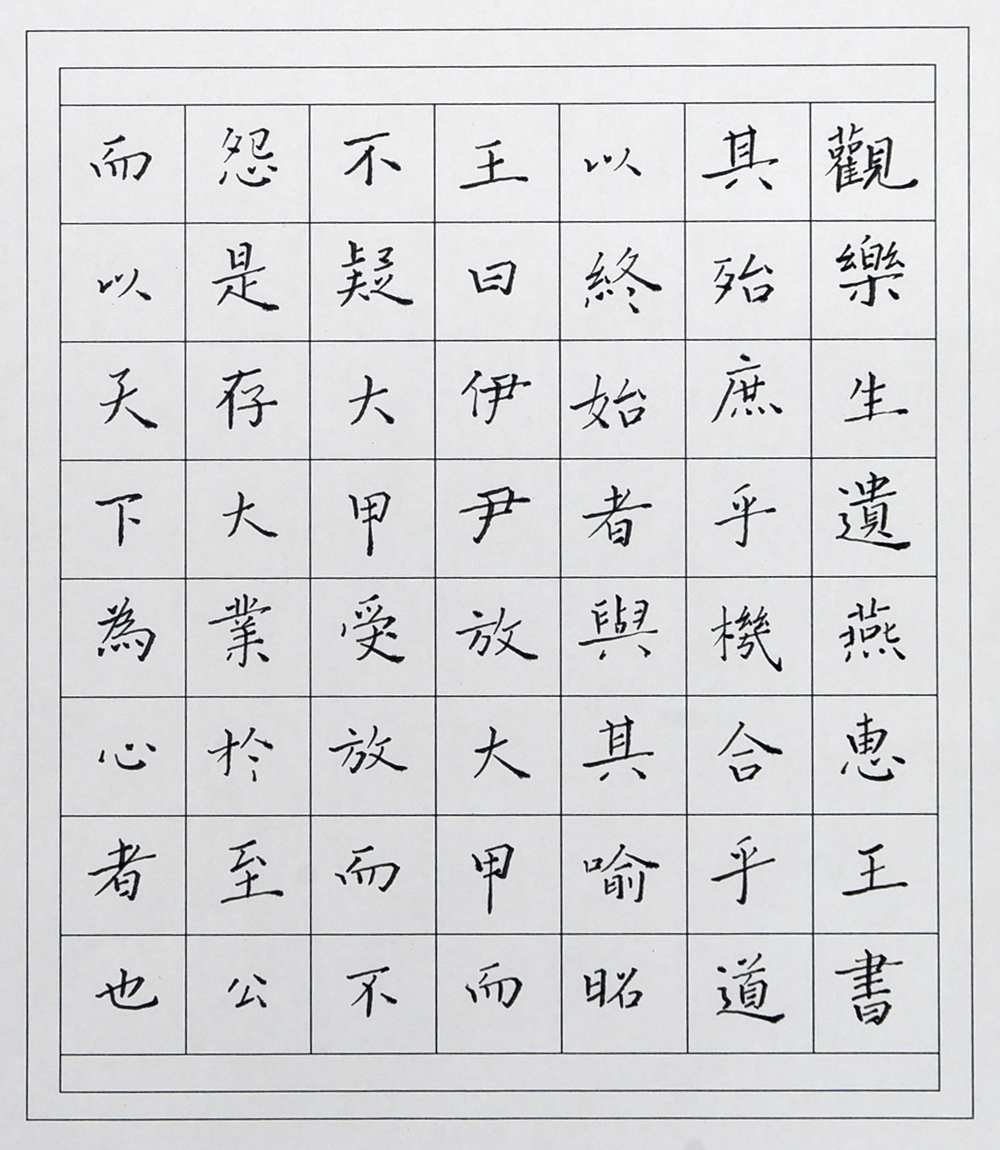 觀樂生遺燕惠王書
其殆庶乎機合乎道
以終始者與其喻昭
王曰伊尹放大甲而
不疑大甲受放而不
怨是存大業於至公
而以天下為心者也